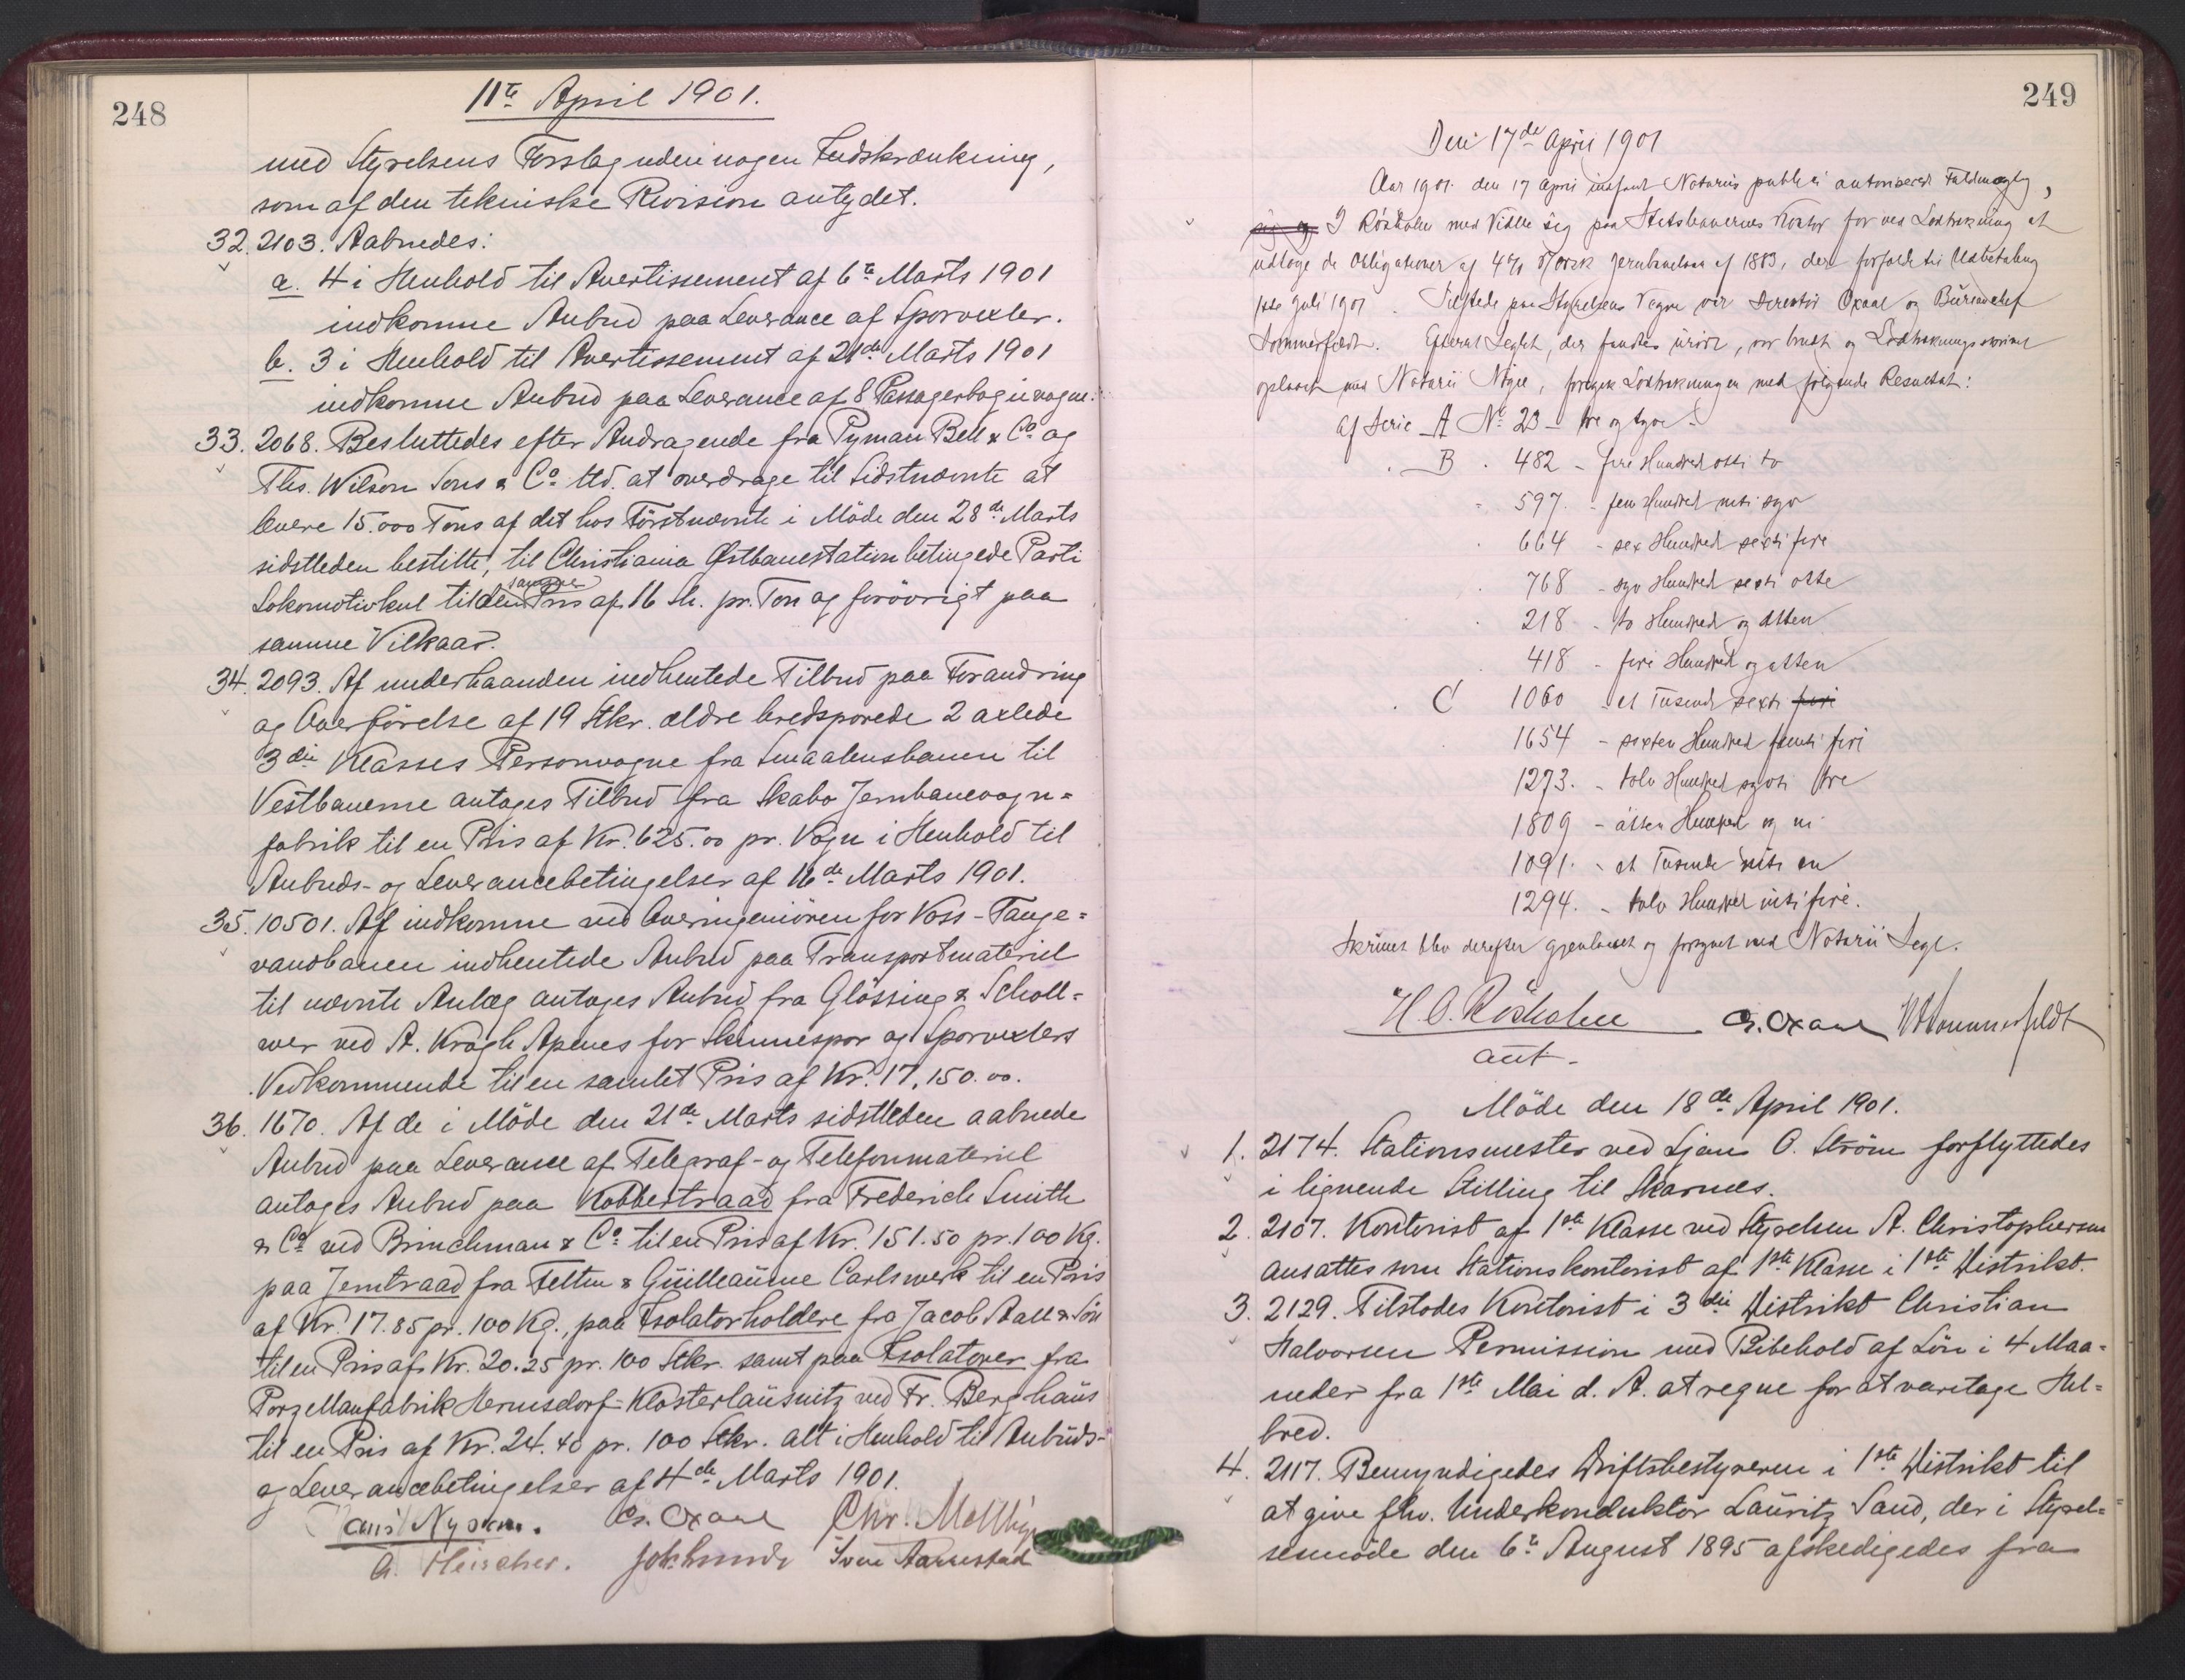 248
11te April 1901.
med Styrelsens Forslag uden nogen Indskrænkning,
som af den tekniske Revision antydet.
32. 2103. Aabnedes:
a. 4 i Henhold til Avertissement af 6te Marts 1901
indkomne Anbud paa Leverance af Sporvexler.
b. 3 i Henhold til Avertissement af 21de Marts 1901
indkomne Anbud paa Leverance af 8 Passagerbogievogne.
33. 2068. Besluttedes efter Andragende fra Pyman Bell & Co. og
Ths. Wilson Sons & Co. Ltd. at overdrage til Sidstnævnte at
levere 15.000 Tons af det hos Förstnævnte i Möde den 28de Marts
sidstleden bestilte, til Christiania Østbanestation betingede Parti
Lokomotivkul til den samme Pris af 16 sh. pr. Ton og forövrigt paa
samme Vilkaar.
34. 2093. Af underhaanden indhentede Tilbud paa Forandring
og Overförelse af 19 Stkr. ældre bredsporede 2 axlede
3die Klasses Personvogne fra Smaalensbanen til
Vestbanerne antages Tilbud fra Skabo Jernbanevogn=
fabrik til en Pris af Kr. 625.00 pr. Vogn i Henhold til
Anbuds- og Leverancebetingelser af 16de Marts 1901.
35. 10501. Af indkomne ved Overingeniören for Voss-Tauge=
vandbanen indhentede Anbud paa Transportmateriel
til nævnte Anlæg antages Anbud fra Glössing & Scholl=
wer ved A. Kragh Apenes for Skinnespor og Sporvexlers
Vedkommende til en samlet Pris af Kr. 17,150.00.
36. 1670. Af de i Möde den 21de Marts sidstleden aabnede
Anbud paa Leverance af Telegraf- og Telefonmateriel
antages Anbud paa Kobbertraad fra Frederich Smith
& Co. ved Brinchman & Co. til en Pris af Kr. 151.50 pr. 100 Kg.
paa Jerntraad fra Felten & Guilleaume Carlswerk til en Pris
af Kr. 17.85 pr. 100 Kg., paa Isolatorholdere fra Jacob Aall & Sön
til en Pris af Kr. 20.25 pr. 100 Stkr. samt paa Isolatorer fra
Porzellanfabrik Hermsdorf-Klosterlausnitz ved Fr. Berghaus
til en Pris af Kr. 24.40 pr. 100 Stkr. alt i Henhold til Anbuds-
og Leverancebetingelser af 4de Marts 1901.
Nysom. Cs. Oxaal Chr.
Joh. Sven Aarrestad
249
Den 17de April 1901
Aar 1901 den 17 April indfandt Notarius publici autoriserede Fuldmægtig,
sig og I Röxholm med Vidne sig paa Statsbanernes Kontor for ved Lodtrækning at
udtage de Obligationer af 4% Jernbanelaan af 1883, der forfalde til Udbetaling
1ste Juli 1901. Tilstede paa Styrelsens Vegne var Direktör Oxaal og Büreauchef
Sommerfeldt. Efterat Seglet, der fandtes urört, var brudt og Lodtrækningsskrinet
oplaast med Notarii Nögle, foregik Lodtrækningen med fölgende Resultat:
Af Serie A No. 23 - tre og tyve.
B. 482 - fire Hundred otti to
597. - fem Hundred nitti syv
664 - sex Hundred sexti fire
768 - syv Hundred sexti otte
218 - to Hundred og atten
418 - fire Hundred og atten
C 1060 - et Tusend sexti fire
1654 - sexten Hundred femti fire
1273. - tolv Hundred sytti tre
1809 - atten Hundred og ni
1091. - et Tusende nitti en
1294. - tolv Hundred nitti fire.
Skrinet blev derefter gjenlaaset og forsynet med Notarii Segl.
H. O. Röxholm Cs. Oxaal Sommerfeldt
aut.
Möde den 18de April 1901.
1. 2174. Stationsmester ved Ljan O. Ström forflyttedes
i lignende Stilling til Skarnæs.
2. 2107. Kontorist af 1ste Klasse ved Styrelsen A. Christophersen
ansattes som Stationskontorist af 1ste Klasse i 1ste Distrikt.
3. 2129. Tilstodes Kontorist i 3die Distrikt Christian
Halvorsen Permission med Bibehold af Lön i 4 Maa=
neder fra 1ste Mai d. A. at regne for at varetage Hel=
bred.
4. 2117. Bemyndigedes Driftsbestyreren i 1ste Distrikt til
at give fhv. Underkonduktör Lauritz Sand, der i Styrel=
sesmöde den 6te August 1895 afskedigedes fra